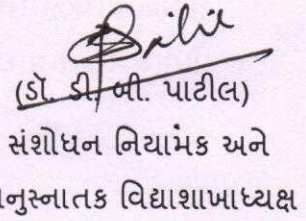 (ડૉ. ડી. બી. પાટીલ)
સંશોધન નિયામક અને
નુસ્નાતક વિદ્યાશાખાધ્યક્ષ